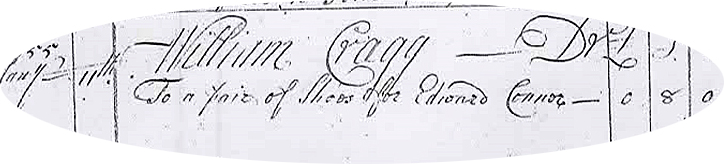 55
Jan.y 11th William Cragg — Dr. £ s.
To a pair of Shoes for Edward Connor — 0 8 0